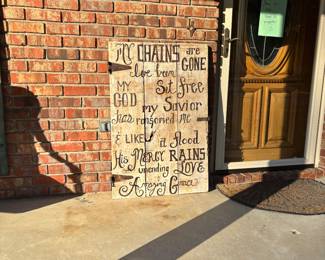 MY CHAINS are
GONE
I've been
Set free
MY
GOD my Savior
has ransomed me
& LIKE a flood
His MERCY RAINS
unending LOVE
Amazing Grace